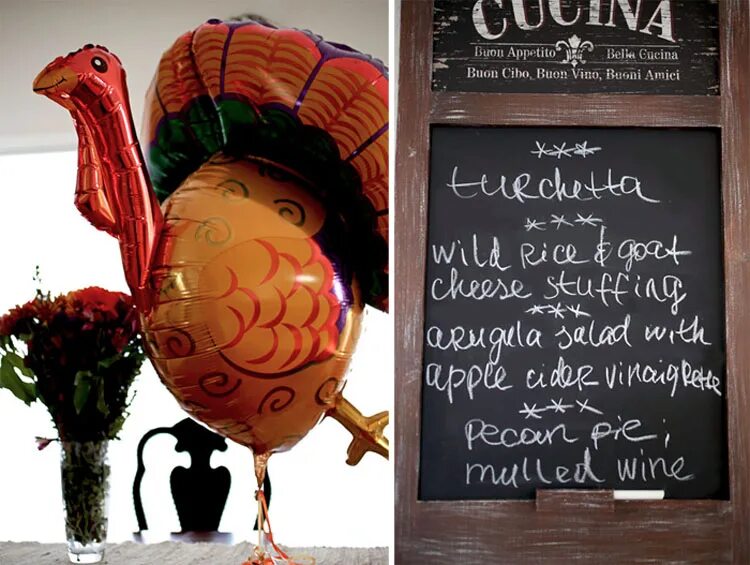 CUCINA
Buon Appetito Bella Cucina
Buon Cibo, Buon Vino, Buoni Amici
***
turchetta
***
wild rice & goat
cheese stuffing
***
arugula salad with
apple cider vinaigrette
***
pecan pie;
mulled wine